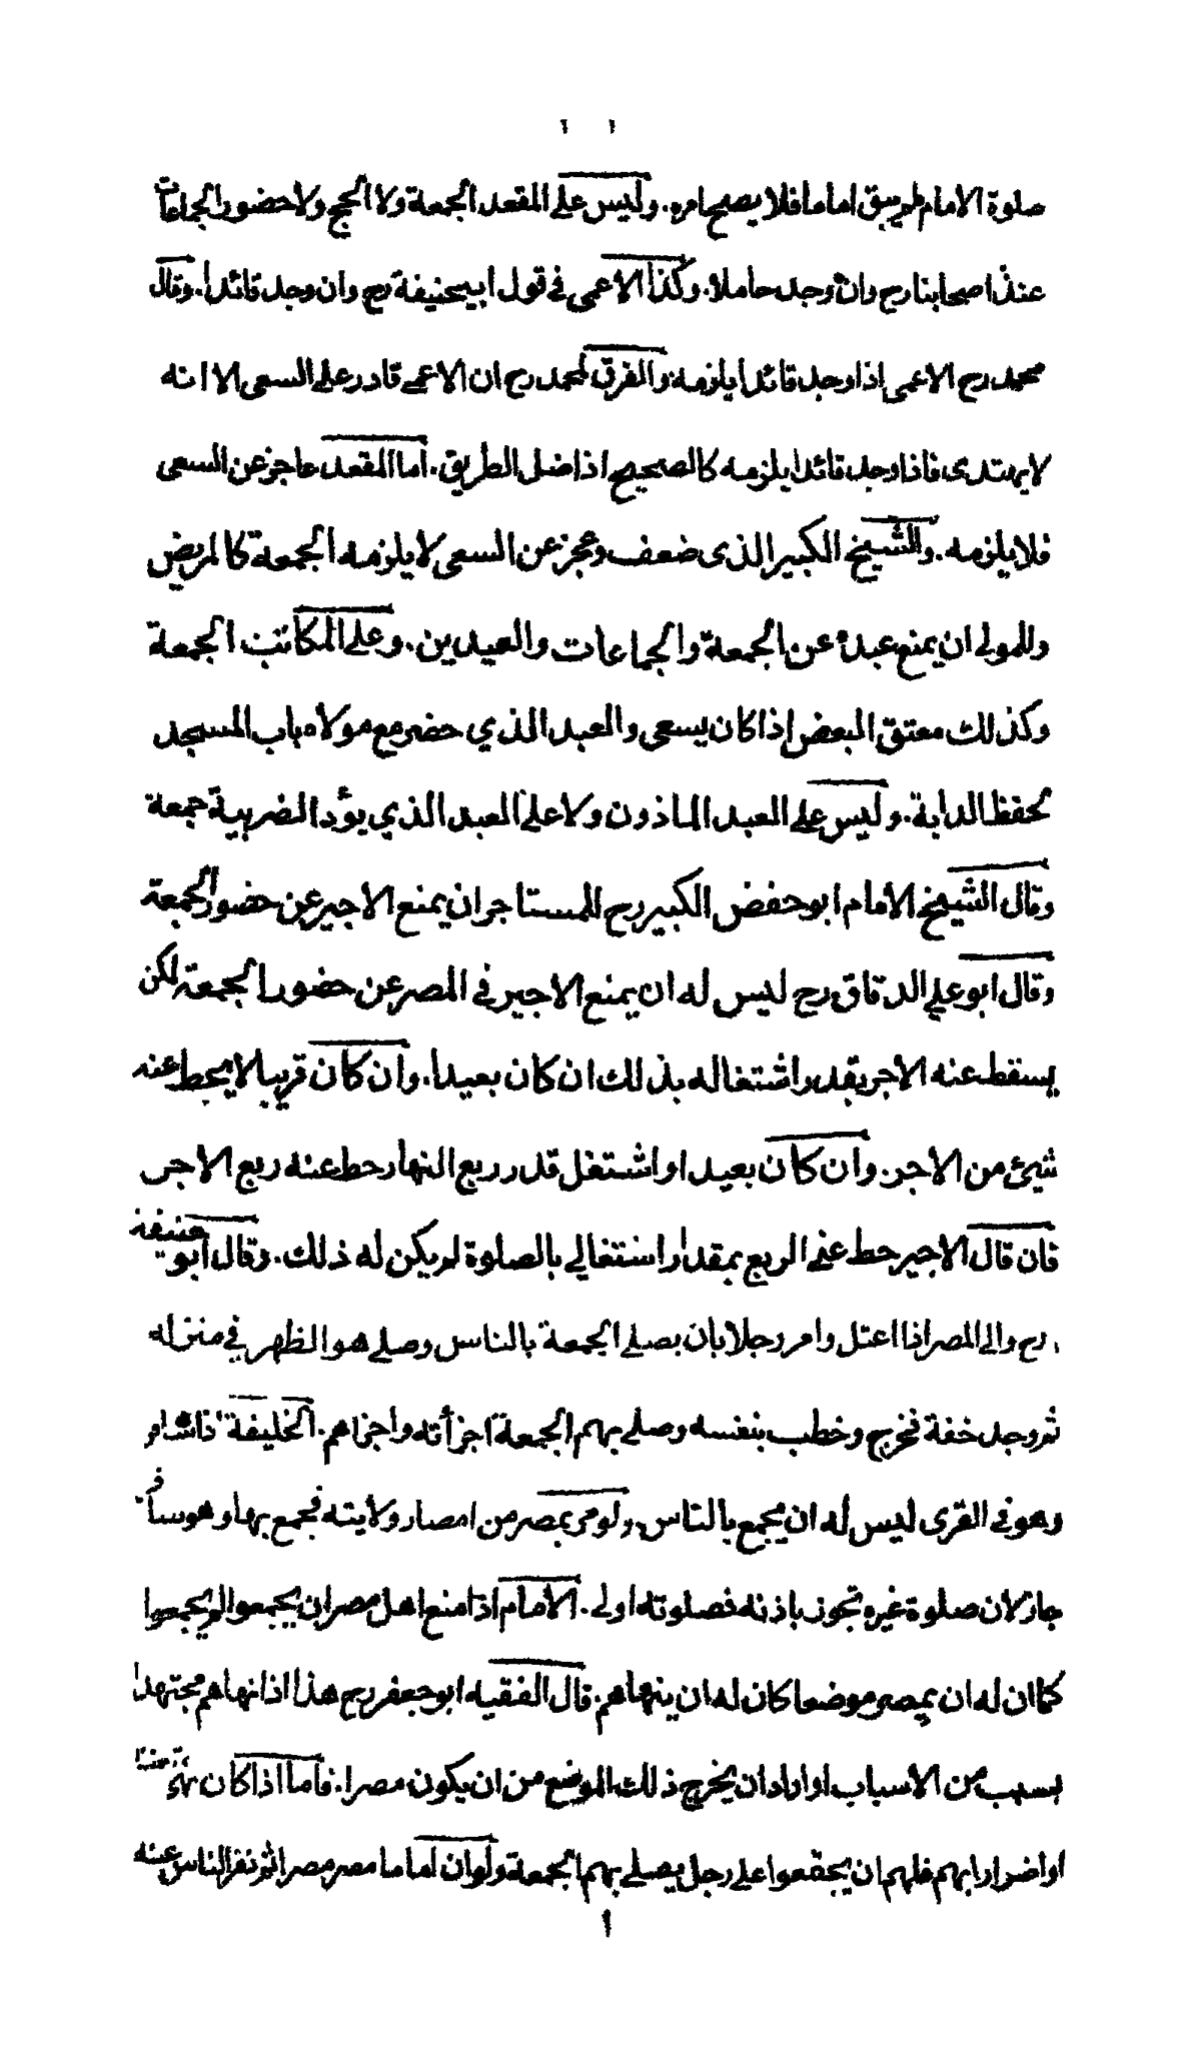 صلوة الامام لم يبق اماما فلا يصح امره. وليس على المقعد الجمعة ولا الحج ولا حضور الجماعات
عند اصحابنا رح وان وجد حاملا. وكذا الاعمى في قول ابيحنيفة رح وان وجد قائدا. وقال
محمد رح الاعمى اذا وجد قائدا يلزمه والفرق لمحمد رح ان الاعمى قادر على السعى الا انه
لا يهتدى فاذا وجد قائدا يلزمه كالصحيح اذا ضل الطريق. اما المقعد عاجز عن السعى
فلا يلزمه. والشيخ الكبير الذى ضعف وعجز عن السعى لا يلزمه الجمعة كالمريض
وللمولى ان يمنع عبده عن الجمعة والجماعات والعيدين. وعلى المكاتب الجمعة
وكذلك معتق البعض اذا كان يسعى والعبد الذي حضر مع مولاه باب المسجد
لحفظ الدابة. وليس على العبد الماذون ولا على العبد الذي يؤدا الضريبة جمعة
وقال الشيخ الامام ابو حفص الكبير رح للمستاجر ان يمنع الاجير عن حضور الجمعة
وقال ابو علي الدقاق رح ليس له ان يمنع الاجير في المصر عن حضور الجمعة لكن
يسقط عنه الاجر بقدر اشتغاله بذلك ان كان بعيدا. وان كان قريبا لا يحط عنه
شيئ من الاجر. وان كان بعيدا واشتغل قدر ربع النهار حط عنه ربع الاجر
فان قال الاجير حط عني الربع بمقدار اشتغالي بالصلوة لم يكن له ذلك. وقال ابو حنيفة
رح والي المصر اذا اعتل وامر رجلا بان يصلي الجمعة بالناس وصلى هو الظهر في منزله
ثم وجد خفة فخرج وخطب بنفسه وصلى بهم الجمعة اجزأته واجزاهم. الخليفة اذا سافر
وهو في القرى ليس له ان يجمع بالناس. ولو مر بمصر من امصار ولايته فجمع بها وهو مسافر
جاز لان صلوة غيره تجوز باذنه فصلوته اولى. الامام اذا منع اهل مصر ان يجمعوا لم يجمعوا
كما ان له ان يمصر موضعا كان له ان ينهاهم. قال الفقيه ابو جعفر رح هذا اذا نهاهم مجتهدا
بسبب من الاسباب او اراد ان يخرج ذلك الموضع من ان يكون مصرا. فاما اذا كان
او اضرارا بهم فلهم ان يجتمعوا على رجل يصلي بهم الجمعة ولو ان اماما مصر مصرا ثم نفر الناس عنه